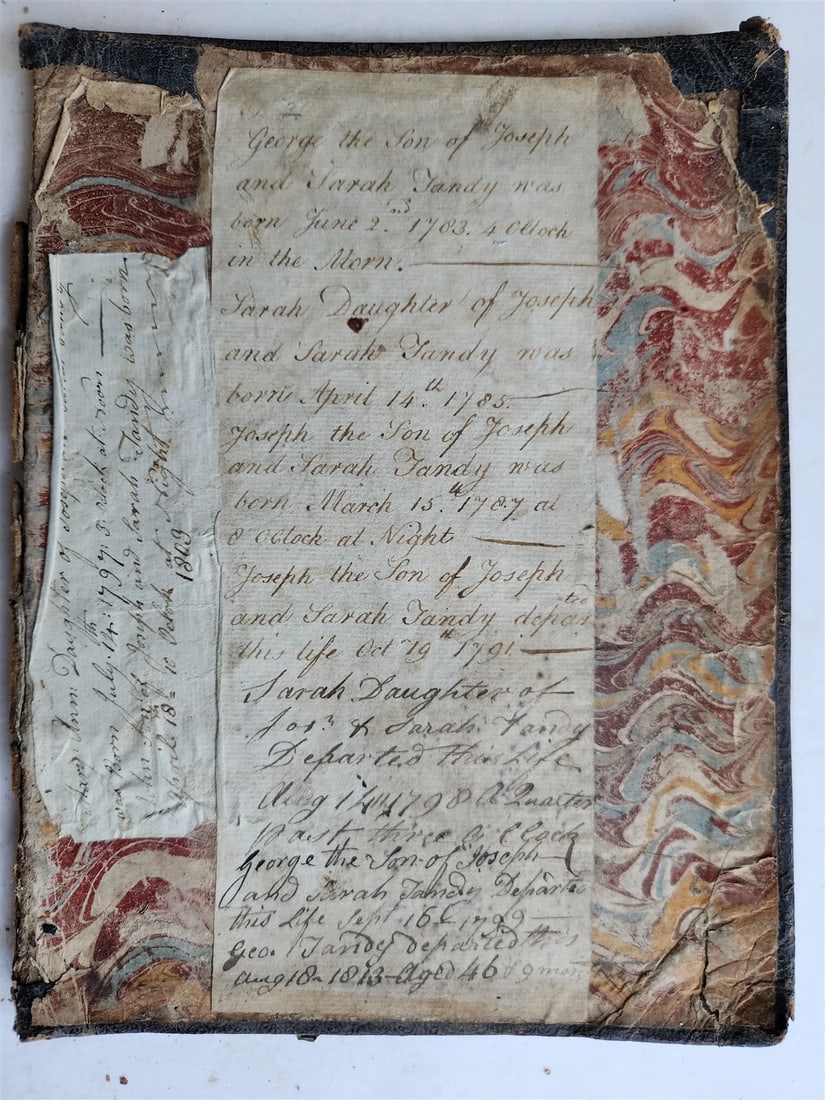 George the Son of Joseph
and Sarah Tandy was
born June 2nd 1783. 4 OClock
in the Morn.
Sarah Daughter of Joseph
and Sarah Tandy was
born April 14th 1785.
Joseph the Son of Joseph
and Sarah Tandy was
born March 15th 1787 at
8 OClock at Night
Joseph the Son of Joseph
and Sarah Tandy departed
this life Oct 19th 1791
Sarah Daughter of
Josh & Sarah Tandy
Departed this Life
Aug 1798 A Quarter
past three o Clock
George the Son of Joseph
and Sarah Tandy Departed
this Life Sept 16 1799
Geo. Tandy departed this
Aug 18 1813 Aged 46 & 9 mon
Ann Daughter of Joseph
was born July 14th 1797 5 oClock at Noon
John Son of Joseph and Sarah Tandy was born
April 18 10 Oclock at Night
1803